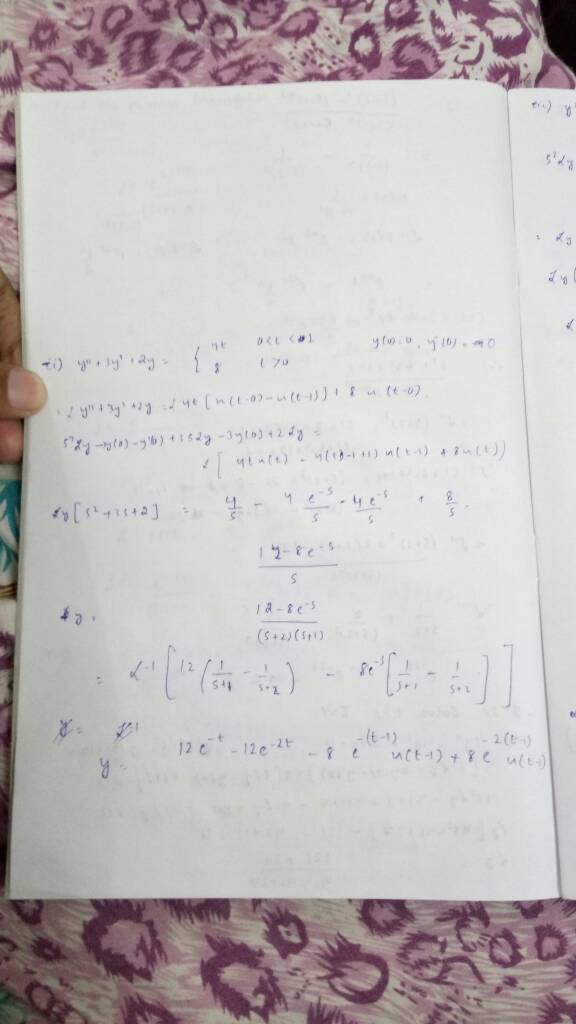 ii) y" + 3y' + 2y = { 4t 0<t<1 y(0)=0, y'(0)=0
8 t>0
= L y" + 3y' + 2y = L 4t [u(t-0) - u(t-1)] + 8 u(t-0).
s²Ly - sy(0) - y'(0) + 3sLy - 3y(0) + 2Ly =
L [4t u(t) - 4(t-1+1) u(t-1) + 8u(t)]
Ly [s² + 3s + 2] = 4/s - 4 e^-s/s - 4e^-s/s + 8/s.
12 - 8e^-s / s
Ly = 12 - 8e^-s / (s+2)(s+1)
= L^-1 [12 (1/s+1 - 1/s+2) - 8e^-s [1/s+1 - 1/s+2]]
y = 12e^-t - 12e^-2t - 8 e^-(t-1) u(t-1) + 8e^-2(t-1) u(t-1)
ii) y"
s²Ly
= Ly
Ly(